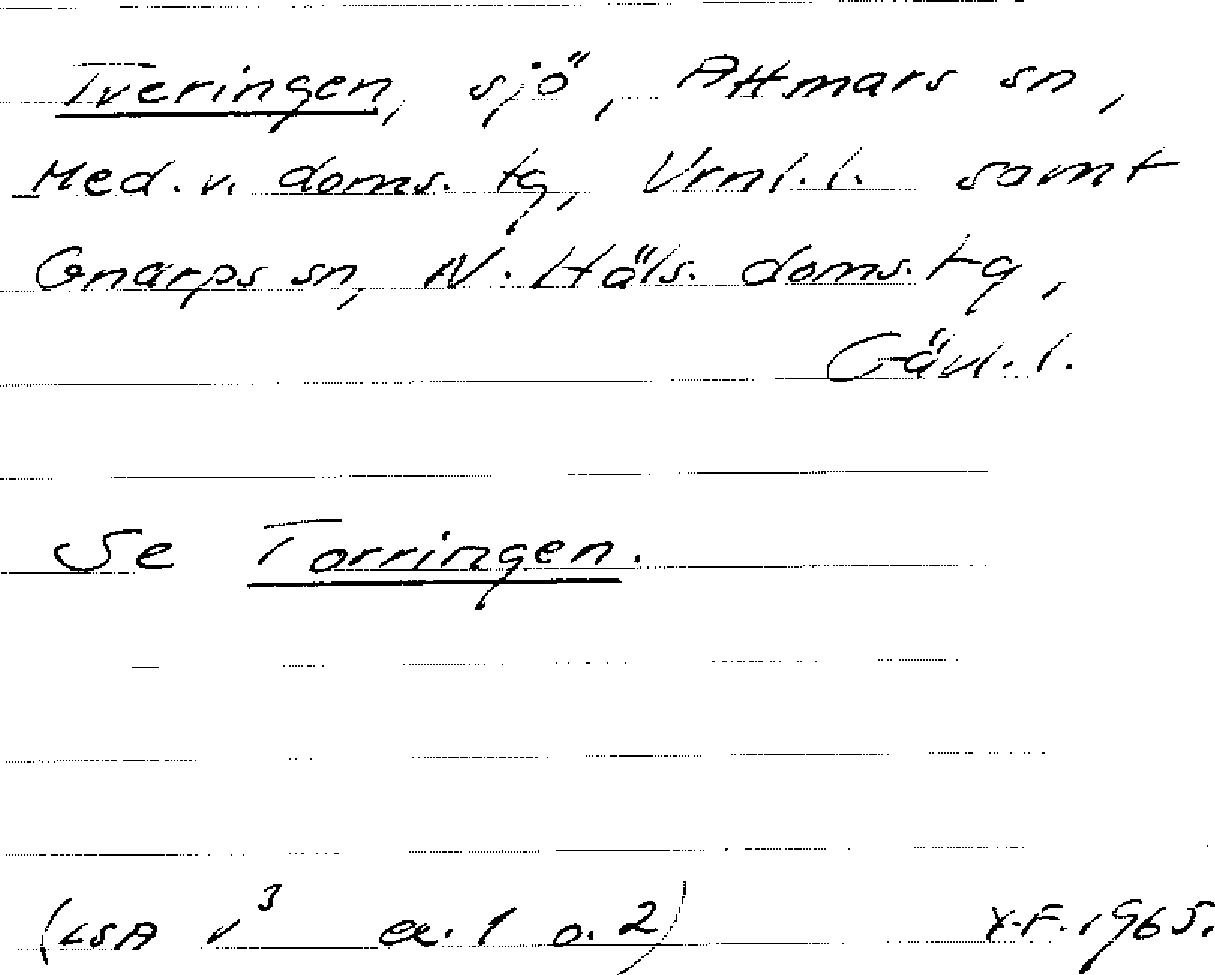 Tveringen, sjö, Attmars sn,
Med. v. doms. tg, Vrnl. l. samt
Gnarps sn, N. Häls. doms. tg,
Gävl. l.
Se Torringen.
(LSA v³ ex. 1 o. 2) Y.F. 1965.